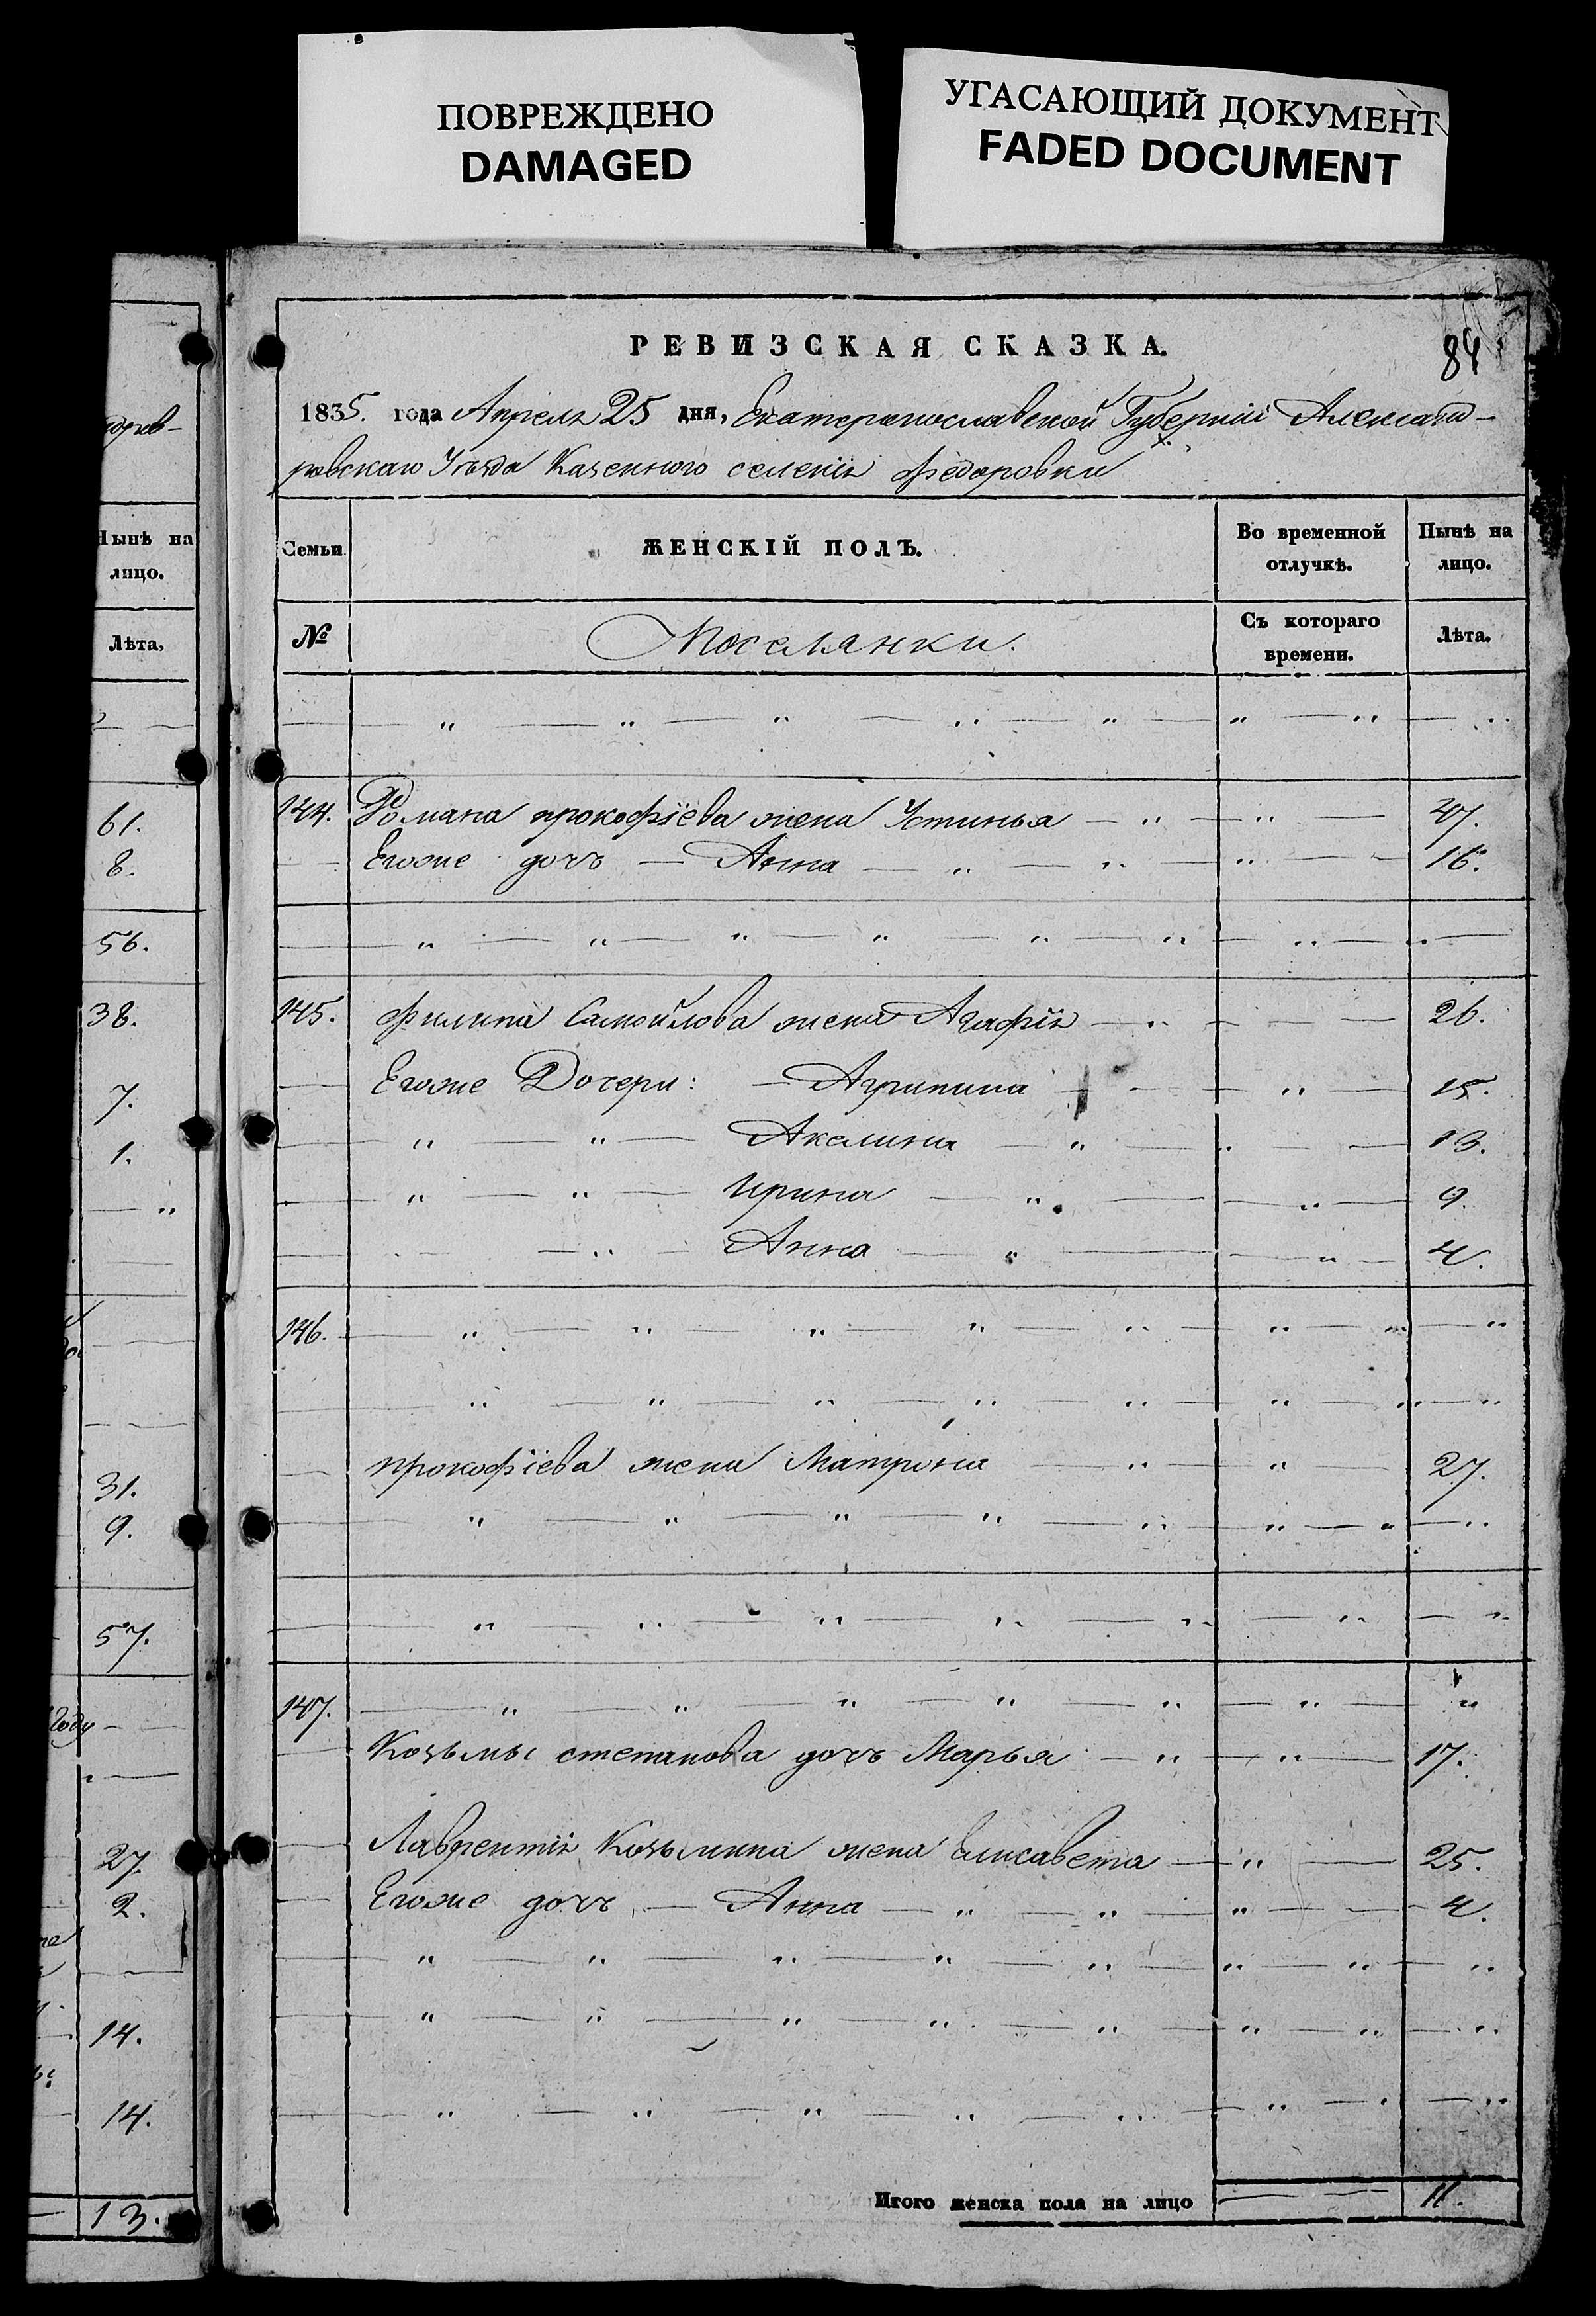 ПОВРЕЖДЕНО
DAMAGED
УГАСАЮЩИЙ ДОКУМЕНТ
FADED DOCUMENT
РЕВИЗСКАЯ СКАЗКА.
84
1835. года Апреля 25 дня, Екатеринославской Губерніи Александ-
ровскаго Уезда Казенного селенія Федоровки
Семьи
ЖЕНСКІЙ ПОЛЪ.
Во временной отлучкѣ.
Нынѣ на лицо.
№
Поселянки.
Съ котораго времени.
Лѣта.
144. Романа прокофіева жена Устинья — „ — „ — 47.
Егоже дочь — Анна — „ — „ — „ — 16.
145. Филипа Самойлова жена Агафія — „ — 26.
Егоже Дочери: — Агрипина — „ — 15.
„ — „ — Акелина — „ — „ — 13.
„ — „ — Ирина — „ — „ — 9.
— „ — Анна — „ — „ — 4.
146. — „ — „ — „ — „ — „ — „ — „
прокофіева жена Матрона — „ — „ — 27.
147. — „ — „ — „ — „ — „ — „ — „
Козьмы степанова дочь Марья — „ — „ — 17.
Лаврентія Козьмина жена Елисавета — „ — 25.
Егоже дочь — Анна — „ — „ — „ — 4.
Итого женска пола на лицо — 11.
Нынѣ на
лицо.
Лѣта,
61.
8.
56.
38.
7.
1.
31.
9.
57.
году
27.
2.
14.
14.
13.